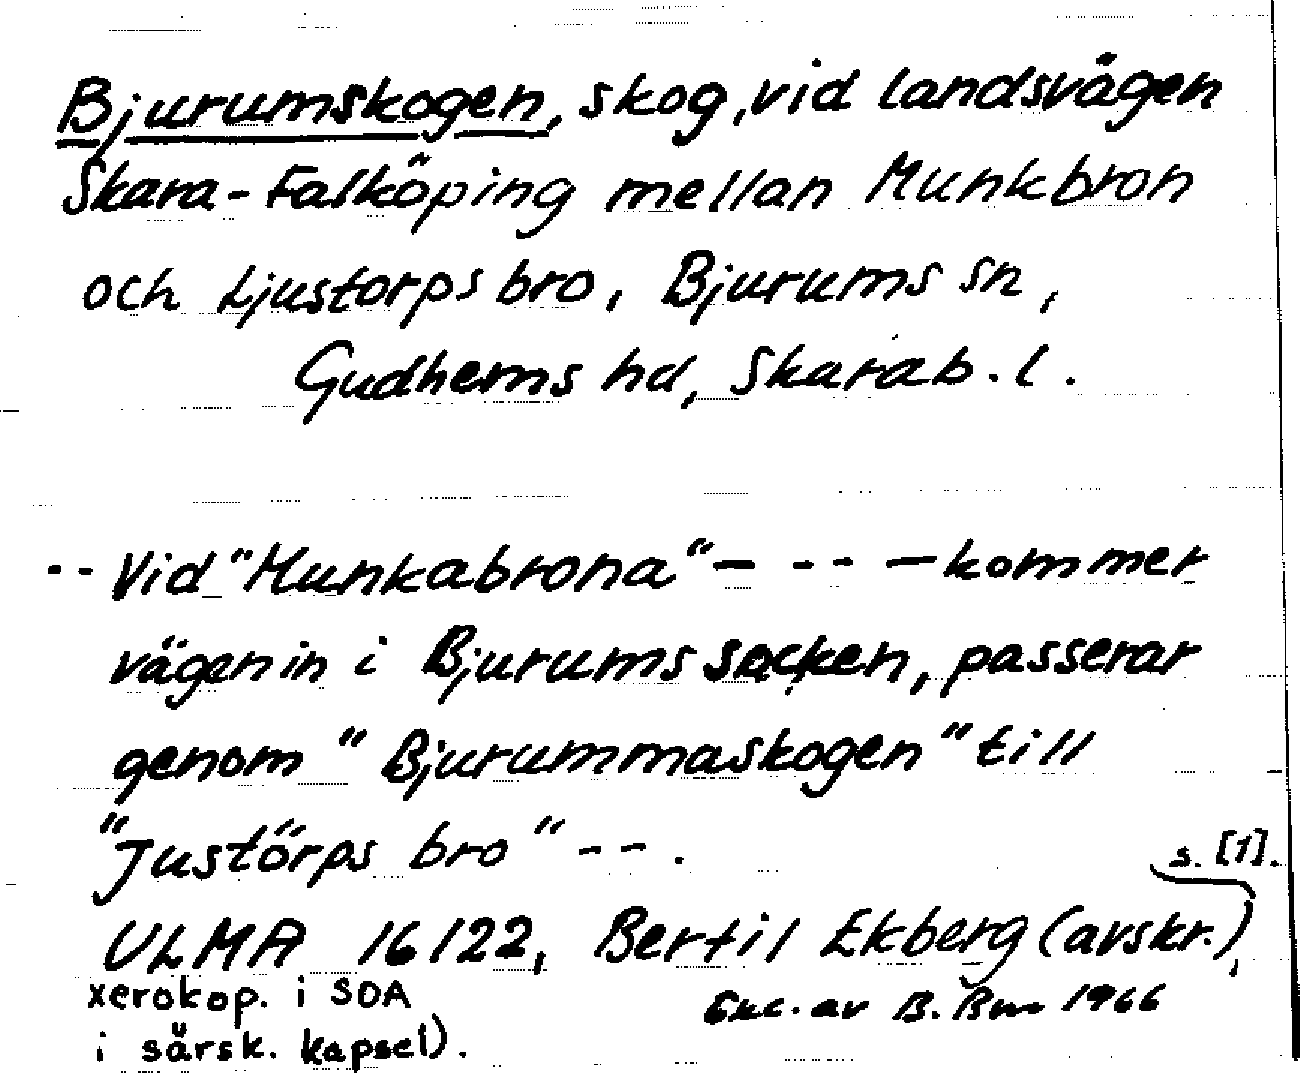 Bjurumskogen, skog, vid landsvägen
Skara-Falköping mellan Munkbron
och Ljustorps bro, Bjurums sn,
Gudhems hd, Skarab. l.
-- Vid "Munkabrona" - --- - kommer
vägen in i Bjurums socken, passerar
genom "Bjurummaskogen" till
"Justörps bro" --.
s. [1].
ULMA 16122, Bertil Ekberg (avskr.),
xerokop. i SOA
i särsk. kapsel).
Exc. av B. 1966